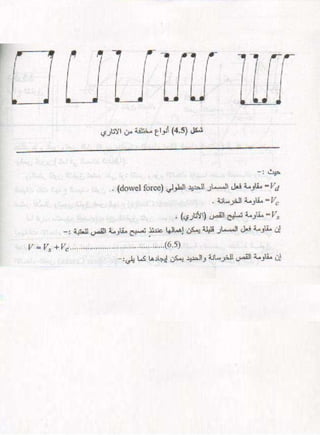 شكل (4.5) أنواع مختلفة من الاتاري
حيث :-
Vd= مقاومة فعل المسمار للحديد الطولي (dowel force) .
Vc= مقاومة الخرسانة .
Vs= مقاومة تسليح القص (الأتاري) ،
إن مقاومة فعل المسمار قليلة يمكن إهمالها عندئذ تصبح مقاومة القص للعتبة :-
V = Vs + Vc.................................(6.5)
إن مقاومة القص للخرسانة والحديد يمكن إيجادها كما يلي:-